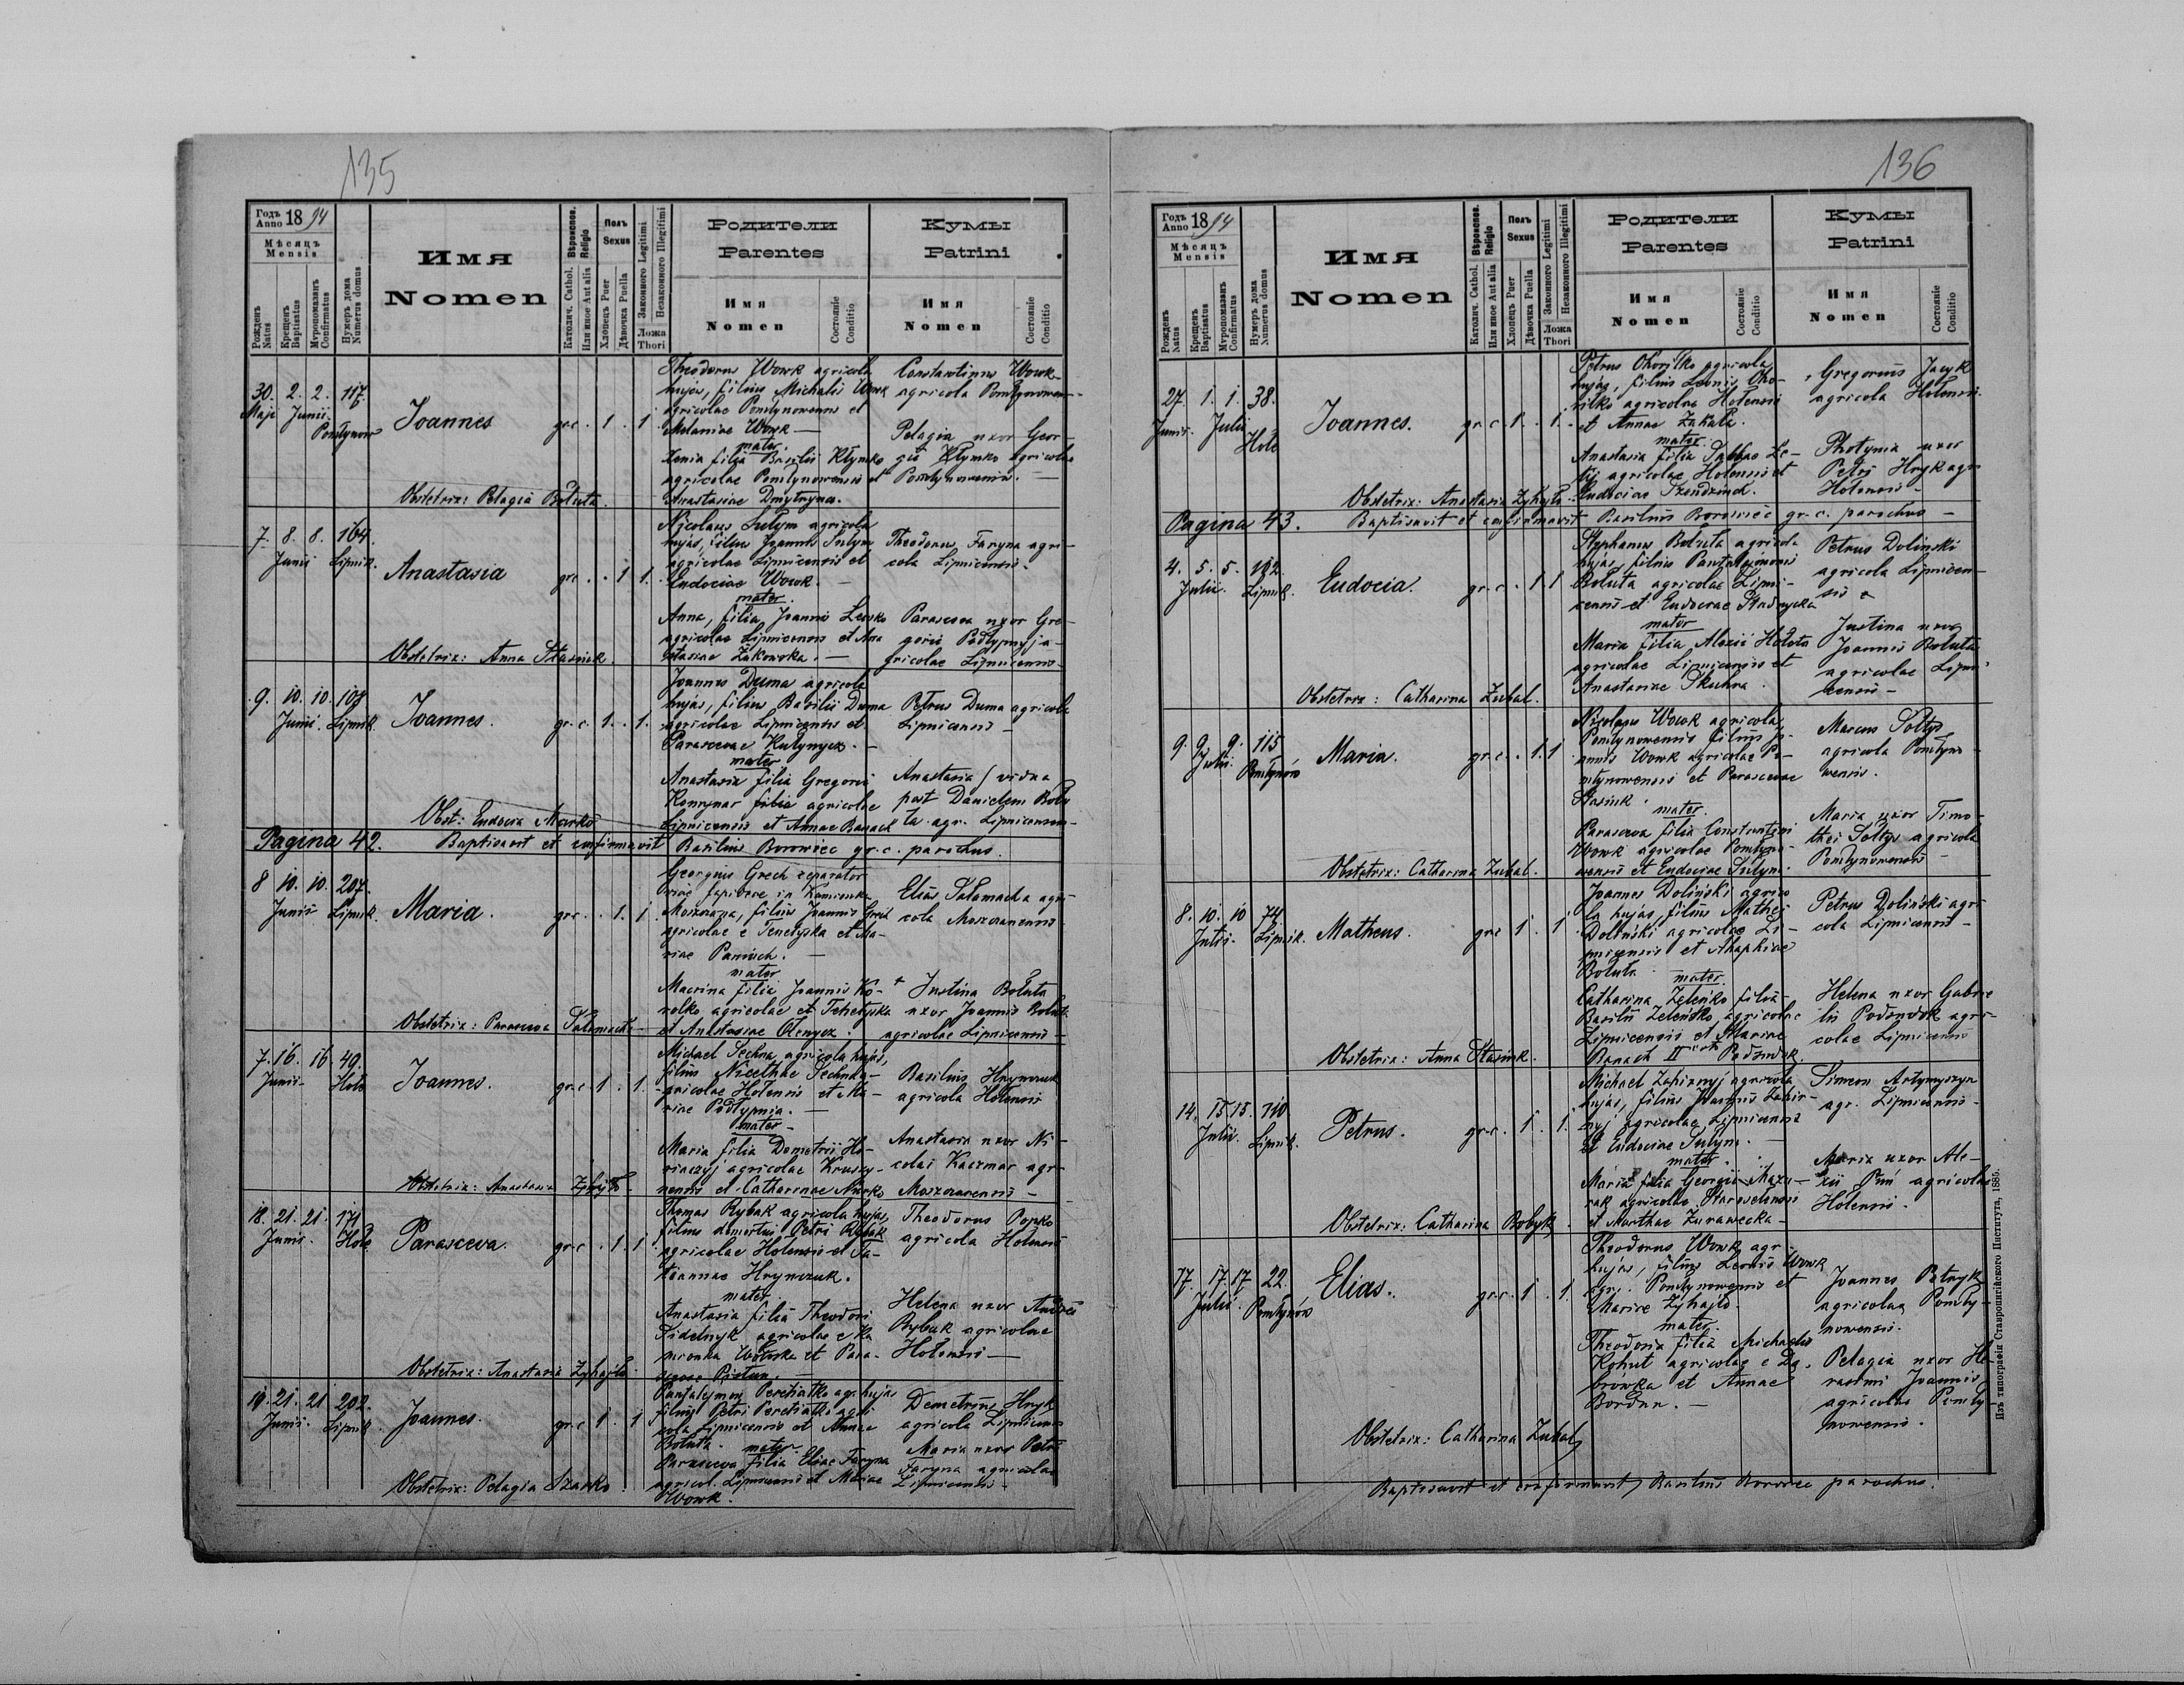 135
Годъ Anno 1894
Мѣсяцъ Mensis
Рожденъ Natus
Крещенъ Baptisatus
Мѵропомазанъ Confirmatus
Нумеръ дома Numerus domus
Имя
Nomen
Вѣроиспов. Religio
Католич. Cathol.
Или иное Aut alia
Полъ
Sexus
Хлопецъ Puer
Дѣвочка Puella
Законного Legitimi
Незаконного Illegitimi
Ложа
Thori
Родители
Parentes
Имя
Nomen
Состояніе
Conditio
Кумы
Patrini
Имя
Nomen
Состояніе
Conditio
30. 2. 2. 117.
Maji Junii
Pomłynow
Joannes
gr.c. 1 . 1
Theodorus Wowk agricola
hujas, filius Michaelis Wowk
agricolae Pomłynowensis et
Melaniae Wowk —
mater.
Xenia filia Basilii Kłymko
agricolae Pomłynowensis et
Anastasiae Dmytryna.
Constantinus Wowk
agricola Pomłynowen-
Pelagia uxor Geor-
gii Kłymko agricolae
Pomłynowensis. —
Obstetrix: Pelagia Bołuta.
7. 8. 8. 164.
Junii Lipnik.
Anastasia
gr.c. . 1 1.
Nicolaus Sułym agricola
hujas, filius Joannis Sułym
agricolae Lipnicensis et
Eudociae Wowk. —
mater.
Anna, filia Joannis Lesko
agricolae Lipnicensis et Ana
stasiae Żukowska. —
Theodorus Faryna agri-
cola Lipnicensis.
Parasceva uxor Gre-
gorii Podłypnyj a-
gricolae Lipnicensis
Obstetrix: Anna Stasiuk.
9. 10. 10. 107
Junii. Lipnik.
Joannes.
gr.c. 1. . 1.
Joannes Duma agricola
hujas, filius Basilii Duma
agricolae Lipnicensis et
Parascevae Kutynycz. —
mater
Anastasia filia Gregorii
Komynar filia agricolae
Lipnicensis et Annae Banach
Petrus Duma agricola
Lipnicensis —
Anastasia vidua
post Danielem Bołu
ta agr. Lipnicensem-
Obst: Eudocia Marko
Pagina 42. Baptisavit et confirmavit Basilius Borowiec gr.c. parochus.
8 10. 10. 207.
Junii Lipnik.
Maria.
gr.c. . 1. 1.
Georgius Grech separator
viae in Kamionka
Moszczana, filius Joannis Grech
agricolae e Tenetyska et Ma-
riae Paniuch. —
mater
Macrina filia Joannis Ko-
walko agricolae et Tenetyska
et Anastasiae Olenycz.
Elias Sałamacha agri-
cola Moszczanensis
Justina Bołuta
uxor Joannis Bołuta
agricolae Lipnicensis —
Obstetrix: Parasceva Sałamacha
7. 16. 16. 49.
Junii Hołe
Joannes.
gr.c. 1 . 1.
Michael Sechna agricola hujas,
filius Nicethae Sechna a-
gricolae Holensis et Ma-
riae Podłypnia. —
mater —
Maria filia Demetrii Ho-
riaczyj agricolae Kruszy-
nensis et Catharinae Nurko
Basilius Hrynczuk
agricola Holensis
Anastasia uxor Ni-
colai Kaczmar agr-
Moszczanensis —
Obstetrix: Anastasia Zyhajło.
18. 21. 21. 171
Junii. Hołe
Parasceva.
gr.c. . 1. 1.
Thomas Rybak agricola hujas,
filius demortui Petri Rybak
agricolae Holensis et Ta-
tiannae Hrynczuk.
mater
Anastasia filia Theodori
Sidelnyk agricolae e Ka
mionka Wołoska et Para-
scevae Pistun. —
Theodorus Popko
agricola Holensis
Helena uxor Andreae
Rybak agricolae
Holensis —
Obstetrix: Anastasia Zyhajło.
19. 21. 21 202.
Junii. Lipnik.
Joannes.
gr.c. 1 . 1
Pantalejmon Peretiatko agr. hujas
filius Petri Peretiatko agri
cola Lipnicensis et Annae
Bołuta. mater.
Parasceva filia Eliae Faryna
agricol. Lipnicensis et Mariae
Wowk.
Demetrius Hryk
agricola Lipnicensis
Maria uxor Petri
Faryna agricolae
Lipnicensis.
Obstetrix: Pelagia Szarko.
136
Годъ Anno 1894
Мѣсяцъ Mensis
Рожденъ Natus
Крещенъ Baptisatus
Мѵропомазанъ Confirmatus
Нумеръ дома Numerus domus
Имя
Nomen
Вѣроиспов. Religio
Католич. Cathol.
Или иное Aut alia
Полъ
Sexus
Хлопецъ Puer
Дѣвочка Puella
Законного Legitimi
Незаконного Illegitimi
Ложа
Thori
Родители
Parentes
Имя
Nomen
Состояніе
Conditio
Кумы
Patrini
Имя
Nomen
Состояніе
Conditio
27. 1. 1. 38.
Junii. Julii
Hołe
Joannes.
gr.c. 1. . 1.
Petrus Ohoriłko agricola
hujas, filius Leonis Oho-
riłko agricolae Holensis
et Annae Zahała.
mater.
Anastasia filia Sabbae Le-
tij agricolae Holensis et
Eudociae Szendziuch.
Gregorius Jacyk
agricola Holensis.
Photynia uxor
Petri Hryk agr.
Holensis —
Obstetrix: Anastasia Zyhajło.
Pagina 43. Baptisavit et confirmavit Basilius Borowiec gr. c. parochus —
4. 5. 5. 182.
Julii. Lipnik.
Eudocia.
gr.c. . 1 1
Stephanus Bołuta agricola
hujas, filius Pantalejmonis
Bołuta agricolae Lipni-
censis et Eudociae Stadnycka
mater
Maria filia Alexii Hołota
agricolae Lipnicensis et
Anastasiae Skuhra.
Petrus Dolinski
agricola Lipnicen-
sis
Justina uxor
Joannis Bołuta
agricolae Lipni-
censis —
Obstetrix: Catharina Zubal.
9. 9. 9. 115
Julii. Pomłynów
Maria.
gr.c. . 1. 1
Nicolaus Wowk agricola
Pomłynowensis filius Jo-
annis Wowk agricolae Po-
młynowensis et Parascevae
Stasiuk. mater.
Parasceva filia Constantini
Wowk agricolae Pomłyno-
wensis et Eudociae Sułym.
Marcus Sołtys
agricola Pomłyno-
wensis.
Maria uxor Timo-
thei Sołtys agricolae
Pomłynowensis —
Obstetrix: Catharina Zubal.
8. 10. 10 74
Julii. Lipnik.
Matheus.
gr.c 1 . 1
Joannes Doliński agrico
la hujas, filius Mathei
Doliński agricolae Li-
pnicensis et Ahaphiae
Bołuta. mater
Catharina Zeleńko filia
Basilii Zeleńko agricolae
Lipnicensis et Mariae
Banach II voti Podźwok
Petrus Doliński agri
cola Lipnicensis —
Helena uxor Gabrie
lis Podźwok agri-
colae Lipnicensis
Obstetrix: Anna Stasiuk.
14. 15 15. 710
Julii. Lipnik.
Petrus.
gr.c. 1 . 1.
Michael Zahirnyj agricola
hujas, filius Joannis Zahir-
nyj agricolae Lipnicensis
et Eudociae Sułym. —
mater
Maria filia Georgii Mazu-
rak agricolae Staroselensis
et Marthae Żurawecka —
Simeon Artymyszyn
agr. Lipnicensis —
Maria uxor Ale-
xii Pun agricolae
Holensis.
Obstetrix: Catharina Bobyk.
17. 17. 17 22.
Julii. Pomłynów
Elias.
gr.c. 1 . 1.
Theodorus Wowk agr.
hujas, filius Leonis Wowk
agr. Pomłynowensis et
Mariae Zyhajło.
mater.
Theodoria filia Michaelis
Kohut agricolae e Dą-
brówka et Annae
Bordun. —
Joannes Petryk
agricola Pomły-
nowensis.
Pelagia uxor
Joannis
agricolae Pomły-
nowensis.
Obstetrix: Catharina Zubal
Baptisavit et confirmavit Basilius Borowiec parochus.
Изъ типографіи Ставропигійского Института, 1886.